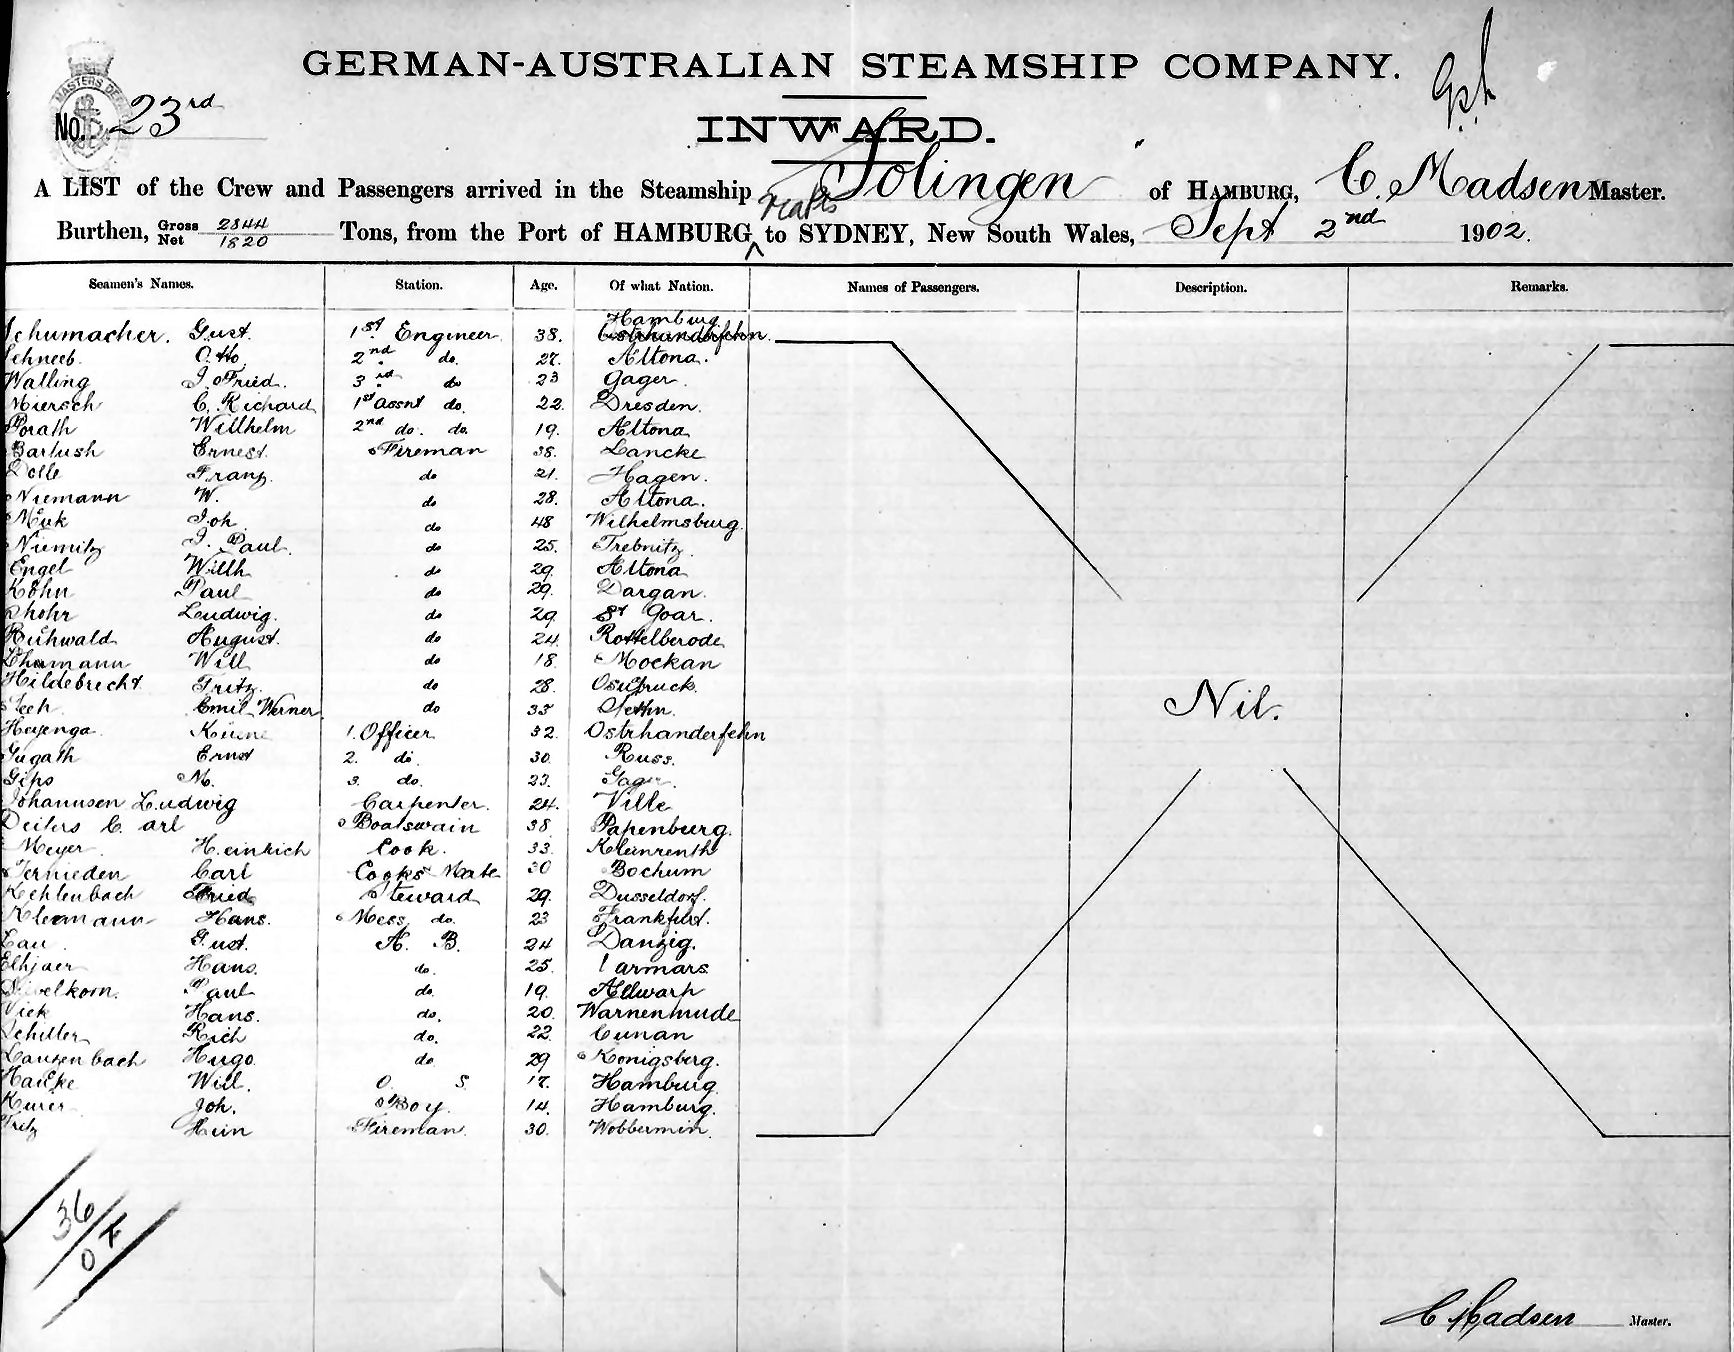 GERMAN-AUSTRALIAN STEAMSHIP COMPANY.
No. 23rd
INWARD.
A LIST of the Crew and Passengers arrived in the Steamship "Solingen" of HAMBURG, C. Madsen Master.
Burthen, Gross 2844 Net 1820 Tons, from the Port of HAMBURG to SYDNEY, New South Wales, Sept 2nd 1902.
Seamen's Names. Station. Age. Of what Nation. Names of Passengers. Description. Remarks.
Hamburg
Schumacher. Gust. 1st Engineer 38.
Schneeb. Otto 2nd do. 27. Altona.
Walling J. Fried. 3rd do 23 Gager.
Miersch C. Richard 1st Assnt do. 22. Dresden.
Porath Willhelm 2nd do. do. 19. Altona
Bartush Ernest. Fireman 38. Lancke
Dolle Franz. do 21. Hagen.
Niemann W. do 28. Altona.
Joh. do 48 Wilhelmsburg.
Niemitz J. Paul. do 25. Trebnitz.
Engel Willh do 29. Altona
Köhn Paul do 29. Dargan.
Ludwig. do 29. St Goar.
August. do 24 Rottelberode
Will do 18. Mockan
Hildebrecht Fritz. do 28.
Emil Werner do 33
Heyenga 1. Officer 32. Ostrhanderfehn
Gugath Ernst 2. do. 30. Russ.
Gips M. 3. do. 23. Gager
Johannsen Ludwig Carpenter. 24. Ville
Deiters Carl Boatswain 38 Papenburg.
Meyer Heinrich Cook. 33. Kleinrenth
Ternieden Carl Cooks Mate 30 Bochum
Kehlenbach Fried Steward 29. Dusseldorf.
Kleemann Hans. Mess do. 23 Frankfurt.
Lau Gust. A. B. 24 Danzig.
Elhjaer Hans. do. 25.
Paul do. 19. Altwarp
Vick Hans. do. 20. Warnemunde
Schiller Rich do. 22. Cunan
Langenbach Hugo do 29 Konigsberg.
Will. O. S. 17. Hamburg
Joh. Boy. 14. Hamburg.
Fritz Hein Fireman. 30. Wobbermin.
Nil.
36
0
C Madsen Master.